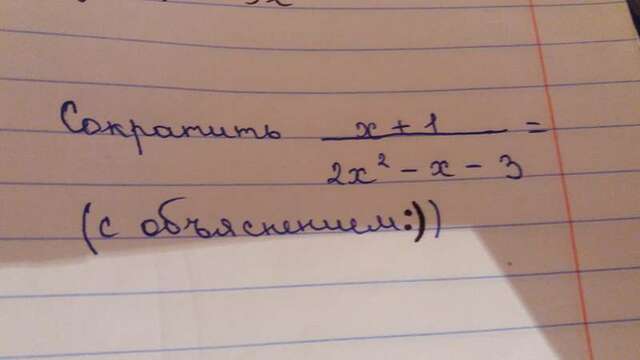 Сократить x + 1 =
2x² - x - 3
(с объяснением:))